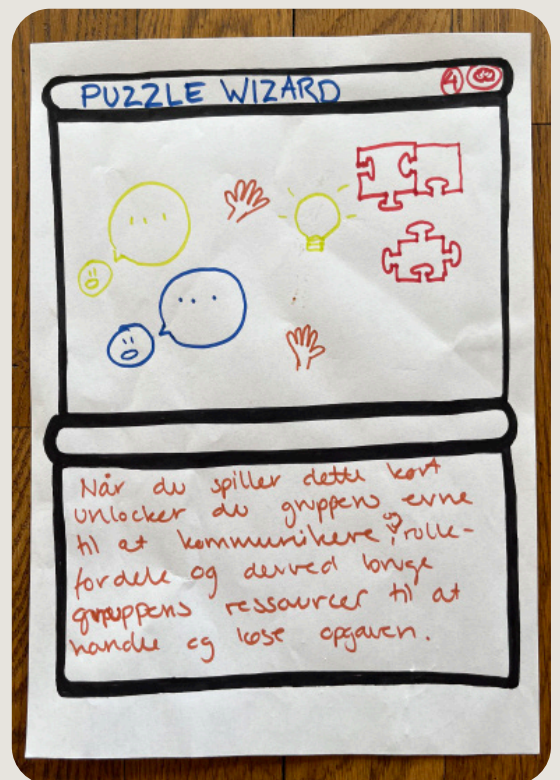 PUZZLE WIZARD 4 ∞
Når du spiller dette kort
unlocker du gruppens evne
til at kommunikere og rolle-
fordele og derved bruge
gruppens ressourcer til at
handle og løse opgaven.